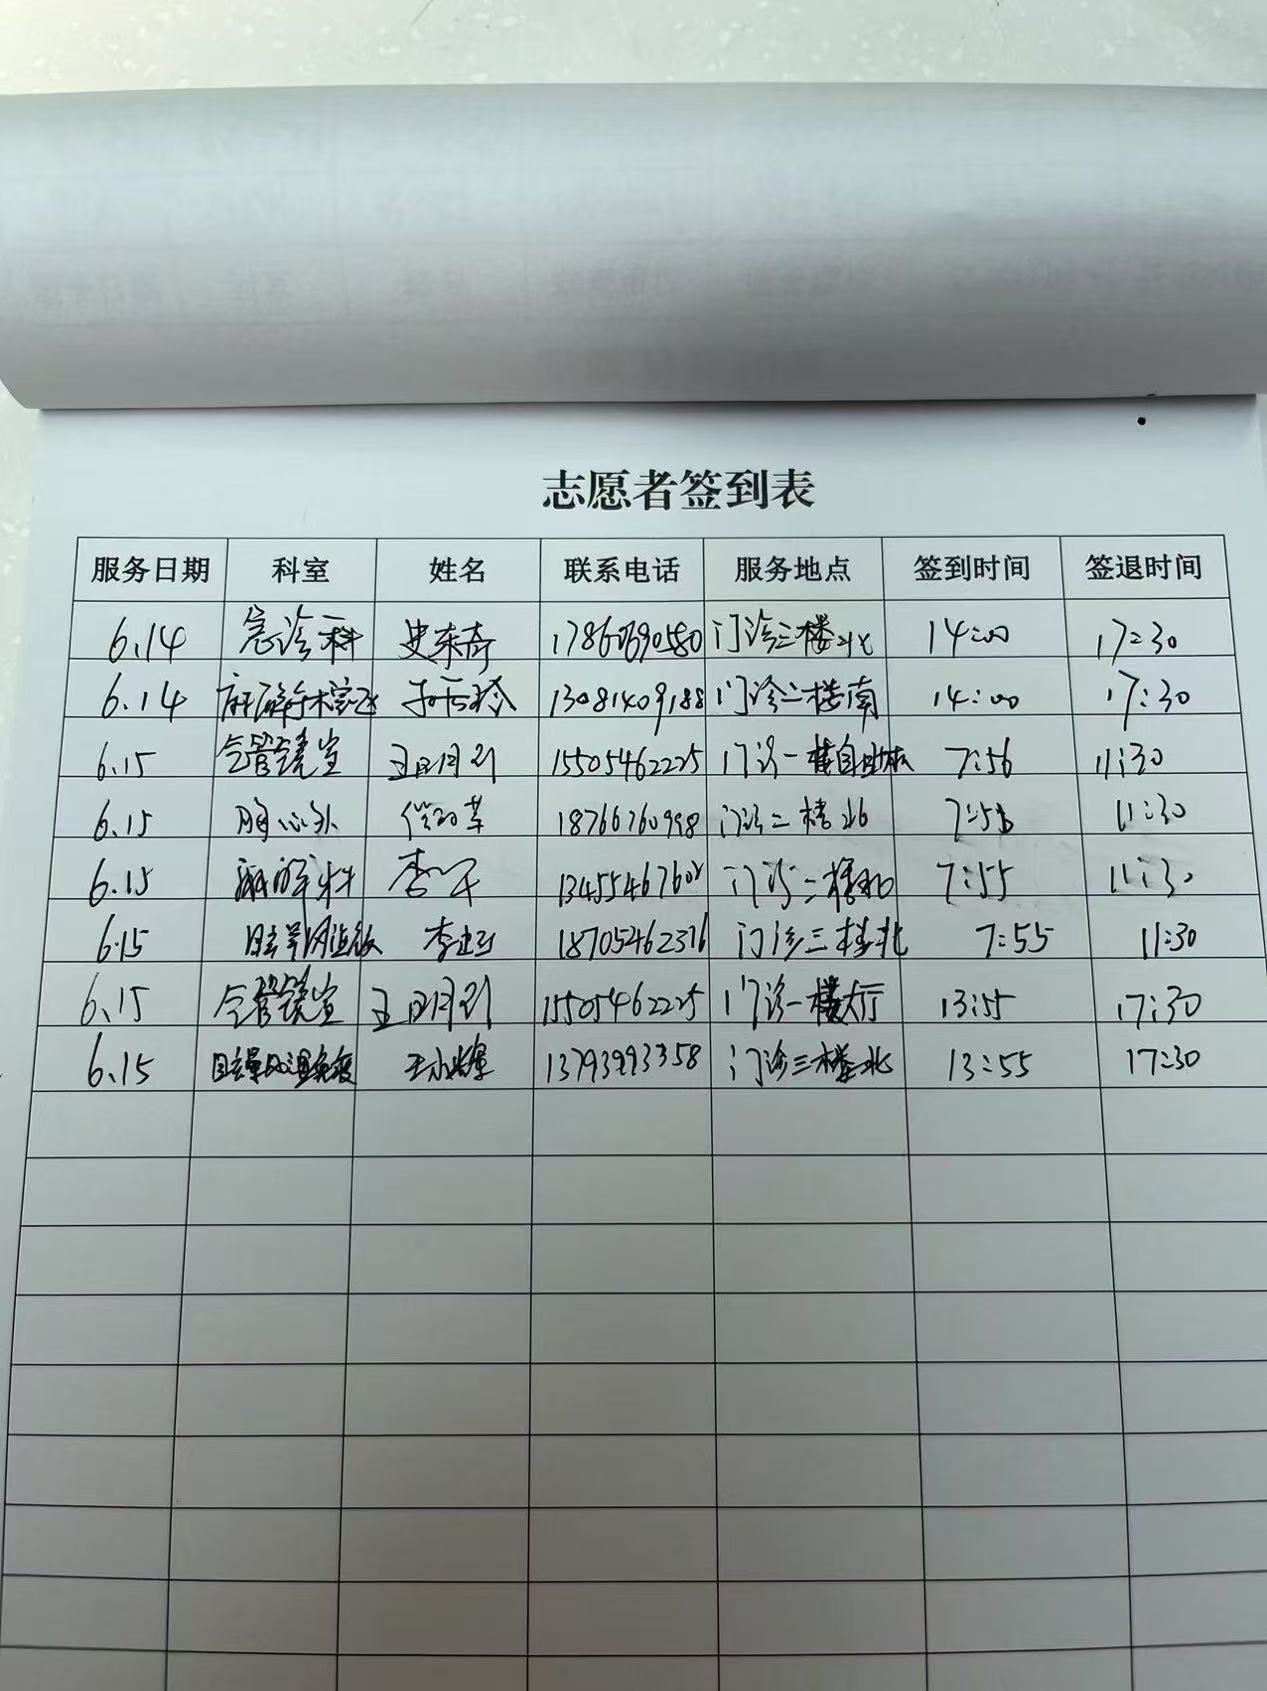 志愿者签到表
服务日期 科室 姓名 联系电话 服务地点 签到时间 签退时间
6.14 急诊科 史东奇 17860690580 门诊三楼北 14:00 17:30
6.14 麻醉手术室 13081409188 门诊二楼南 14:00 17:30
6.15 气管镜室 王明月 15505462225 门诊一楼自助机 7:56 11:30
6.15 胸心外 18766760998 门诊二楼北 11:30
6.15 麻醉科 李 门诊二楼北 7:55 11:30
6.15 李 门诊三楼北 7:55 11:30
6.15 气管镜室 王明月 15505462225 门诊一楼大厅 13:55 17:30
6.15 王 13793993358 门诊三楼北 13:55 17:30